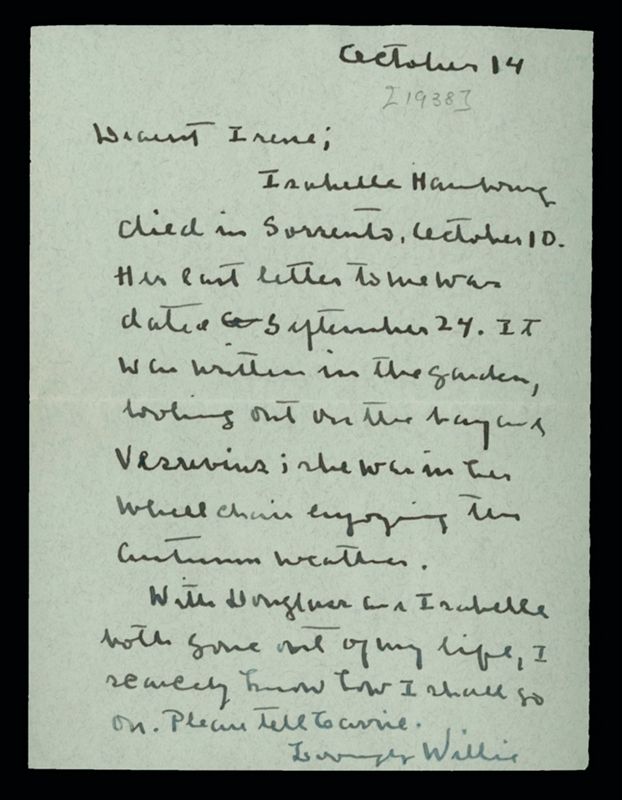 October 14
[1938]
Dearest Irene;
Isabelle Hambourg
died in Sorrento, October 10.
Her last letter to me was
dated September 24. It
was written in the garden,
looking out on the bay and
Vesuvius; she was in her
wheel chair enjoying the
autumn weather.
With Douglass and Isabelle
both gone out of my life, I
scarcely know how I shall go
on. Please tell Carrie.
Lovingly Willie